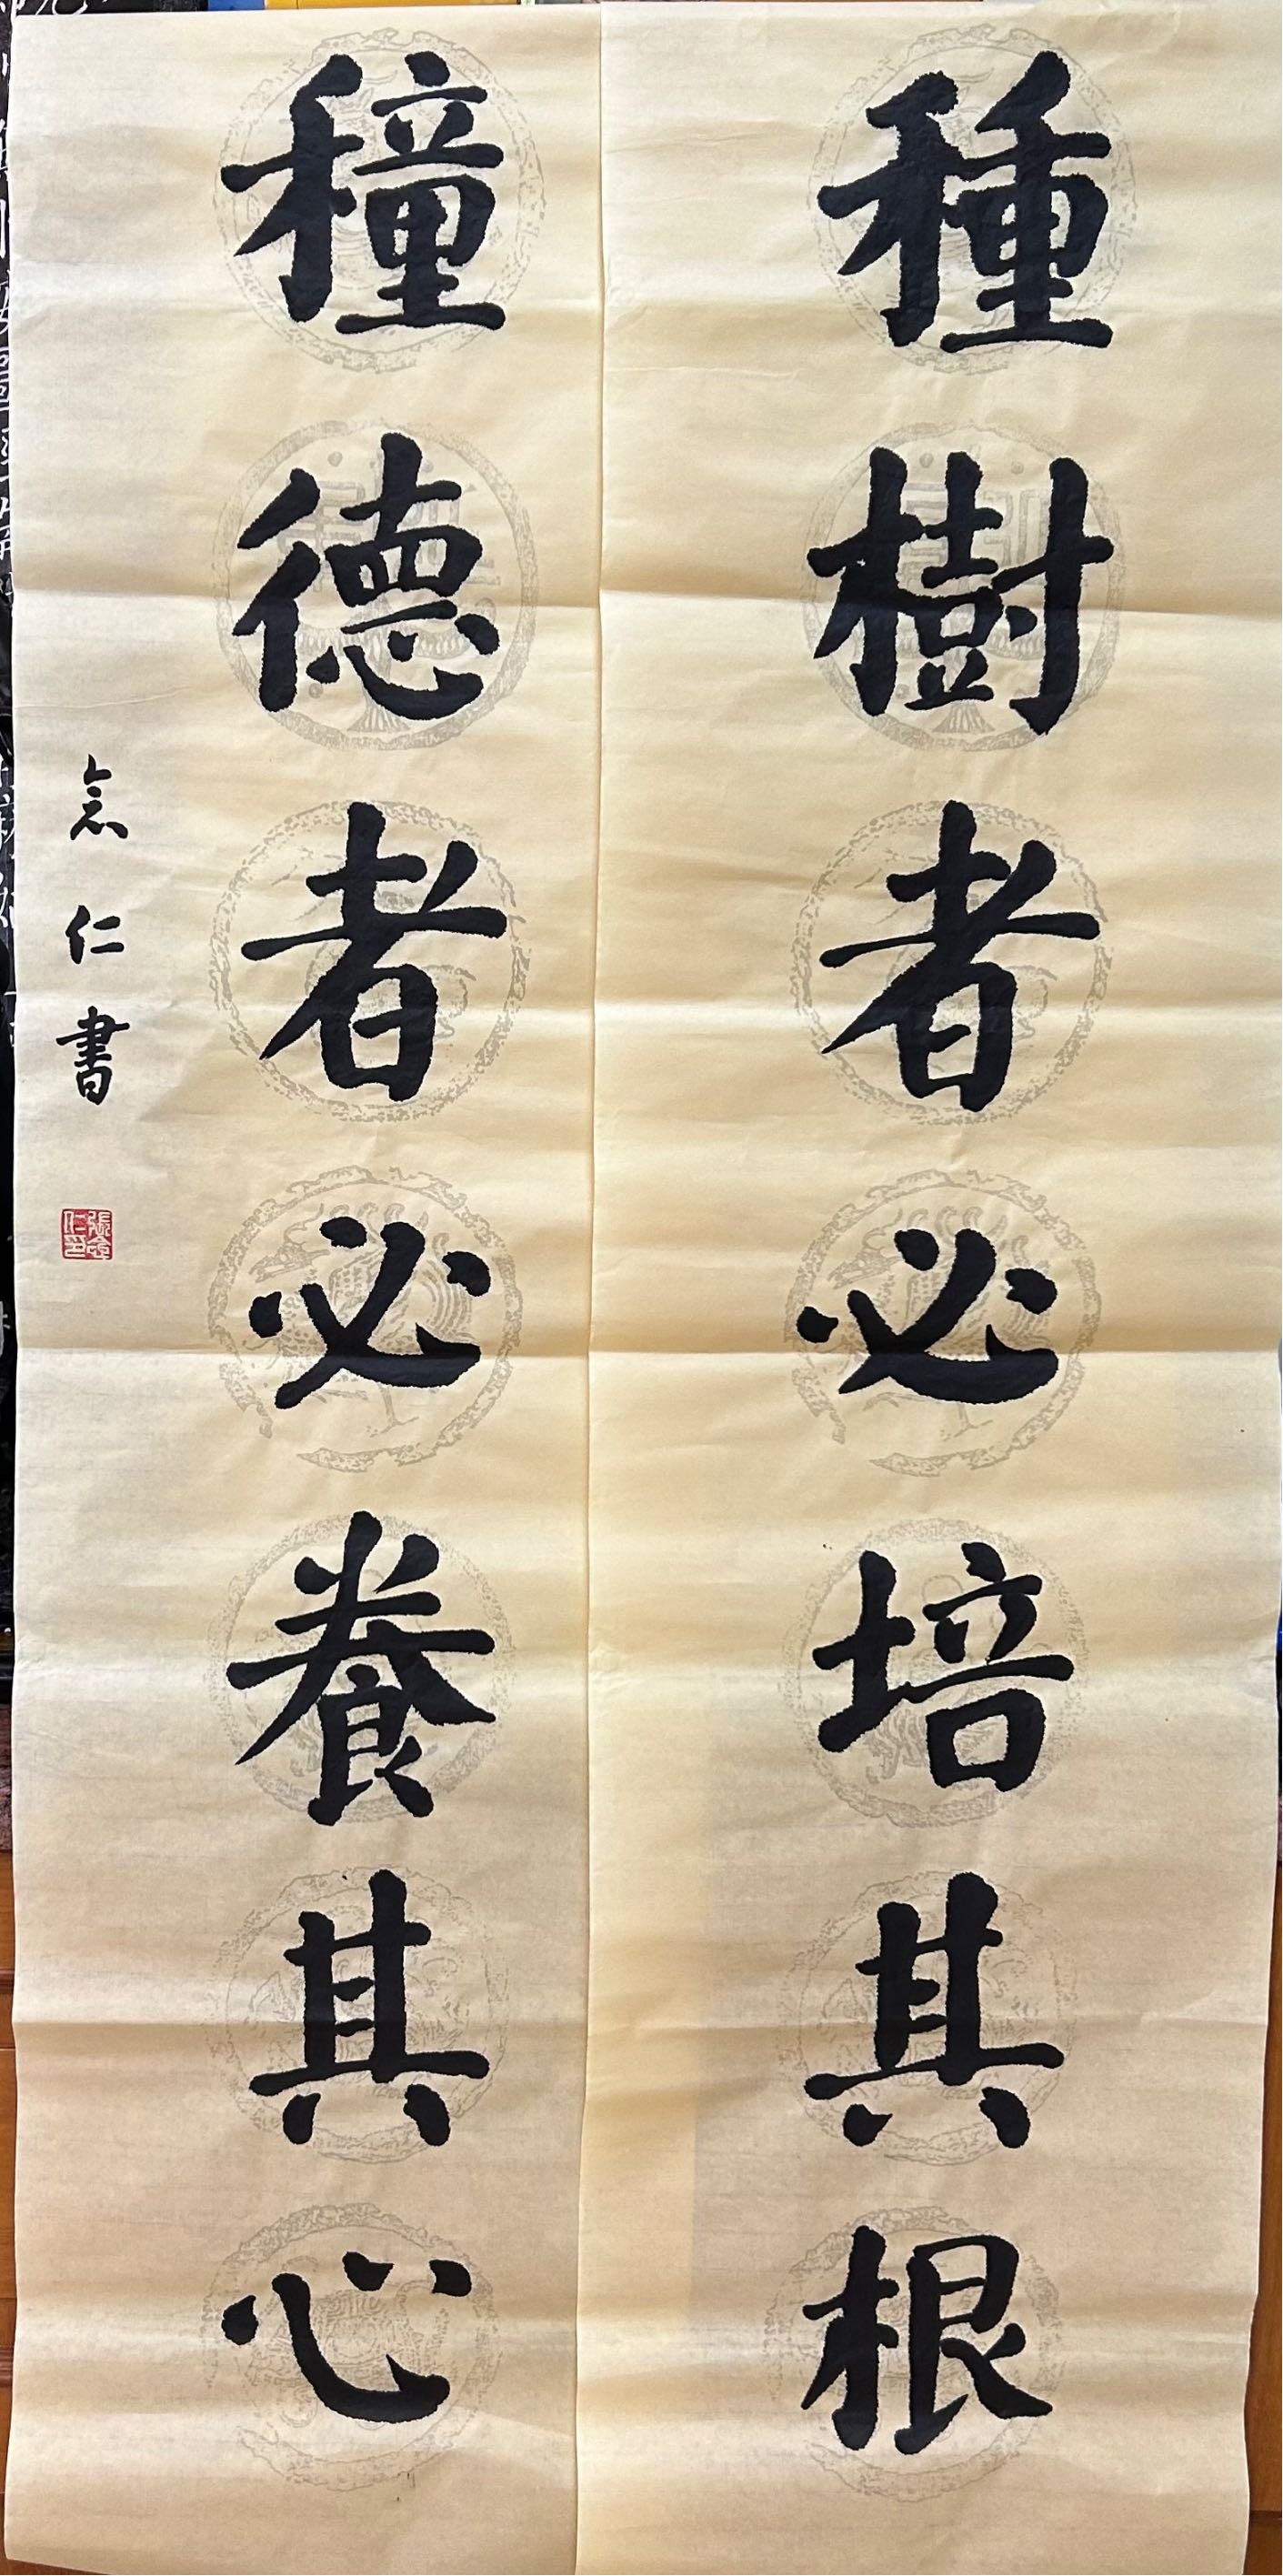 種樹者必培其根
穜德者必養其心
念仁書
張念仁印